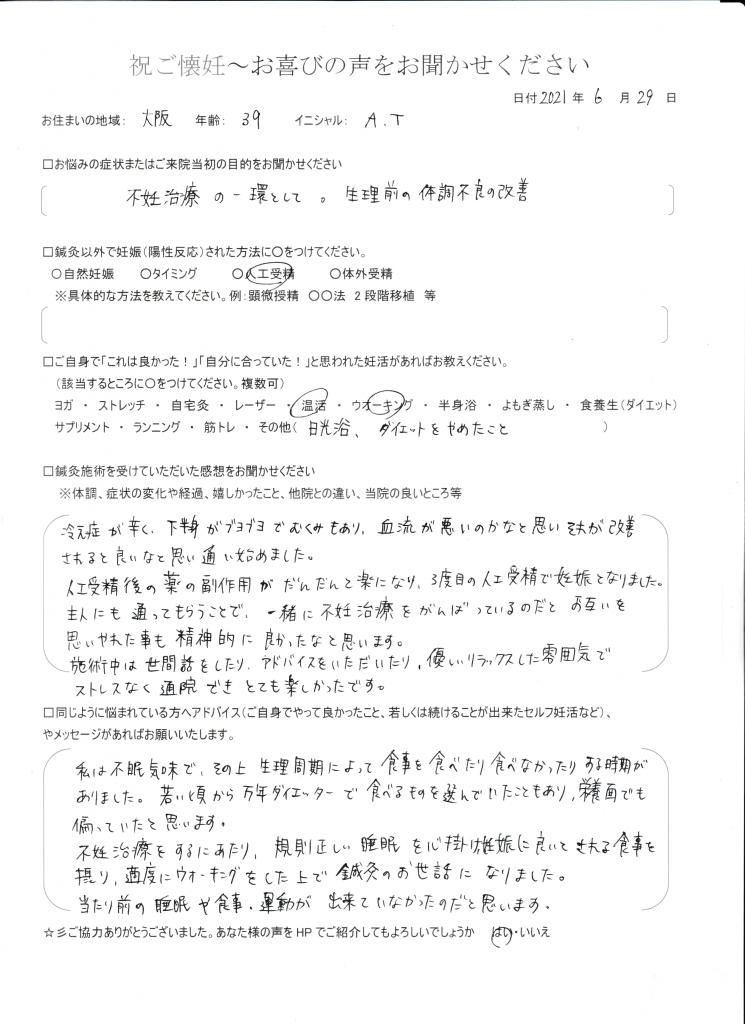 祝ご懐妊～お喜びの声をお聞かせください
日付 2021 年 6 月 29 日
お住まいの地域： 大阪 年齢： 39 イニシャル： A.T
□お悩みの症状またはご来院当初の目的をお聞かせください
不妊治療の一環として。生理前の体調不良の改善
□鍼灸以外で妊娠（陽性反応）された方法に〇をつけてください。
〇自然妊娠 〇タイミング 〇人工受精 〇体外受精
※具体的な方法を教えてください。例：顕微授精 〇〇法 2段階移植 等
□ご自身で「これは良かった！」「自分に合っていた！」と思われた妊活があればお教えください。
（該当するところに〇をつけてください。複数可）
ヨガ ・ ストレッチ ・ 自宅灸 ・ レーザー ・ 温活 ・ ウオーキング ・ 半身浴 ・ よもぎ蒸し ・ 食養生（ダイエット）
サプリメント ・ ランニング ・ 筋トレ ・ その他（ 日光浴、ダイエットをやめたこと ）
□鍼灸施術を受けていただいた感想をお聞かせください
※体調、症状の変化や経過、嬉しかったこと、他院との違い、当院の良いところ等
冷え症が辛く、下半身がブヨブヨでむくみもあり、血流が悪いのかなと思いそれが改善
されると良いなと思い通い始めました。
人工受精後の薬の副作用がだんだんと楽になり、3度目の人工受精で妊娠となりました。
主人にも通ってもらうことで、一緒に不妊治療をがんばっているのだとお互いを
思いやれた事も精神的に良かったなと思います。
施術中は世間話をしたり、アドバイスをいただいたり、優しいリラックスした雰囲気で
ストレスなく通院できとても楽しかったです。
□同じように悩まれている方へアドバイス（ご自身でやって良かったこと、若しくは続けることが出来たセルフ妊活など）、
やメッセージがあればお願いいたします。
私は不眠気味で、その上生理周期によって食事を食べたり食べなかったりする時期が
ありました。若い頃から万年ダイエッターで食べるものを選んでいたこともあり、栄養面でも
偏っていたと思います。
不妊治療をするにあたり、規則正しい睡眠を心掛け妊娠に良いとされる食事を
摂り、適度にウオーキングをした上で鍼灸のお世話になりました。
当たり前の睡眠や食事・運動が出来ていなかったのだと思います。
☆彡ご協力ありがとうございました。あなた様の声をHPでご紹介してもよろしいでしょうか はい・いいえ